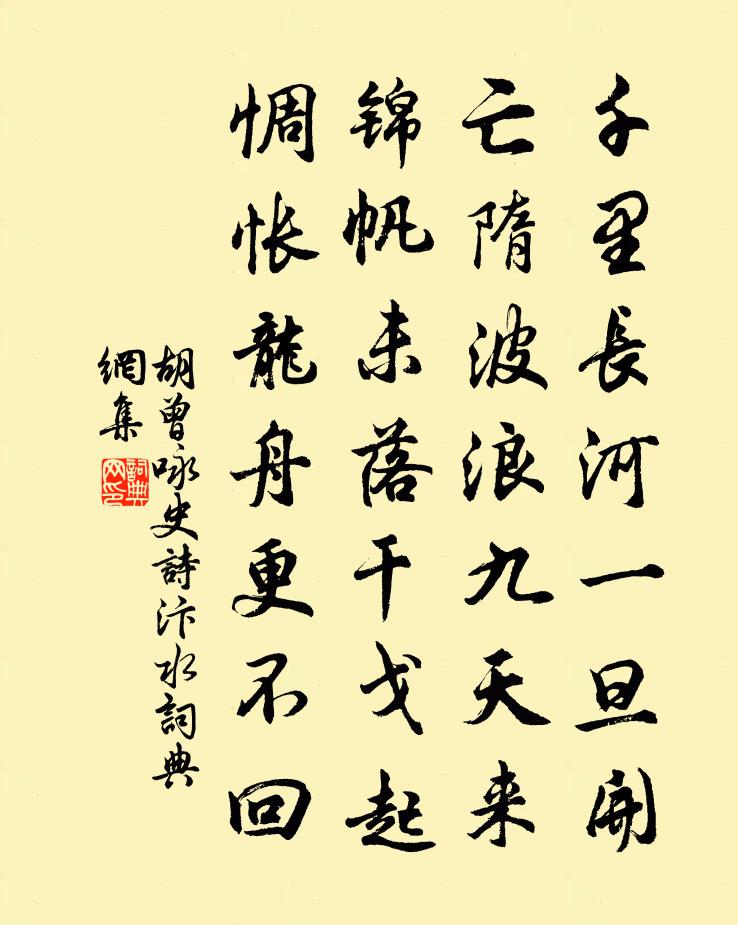 千里長河一旦開
亡隋波浪九天来
錦帆未落干戈起
惆怅龍舟更不回
胡曾咏史詩汴水詞典
網集
詞典
网印